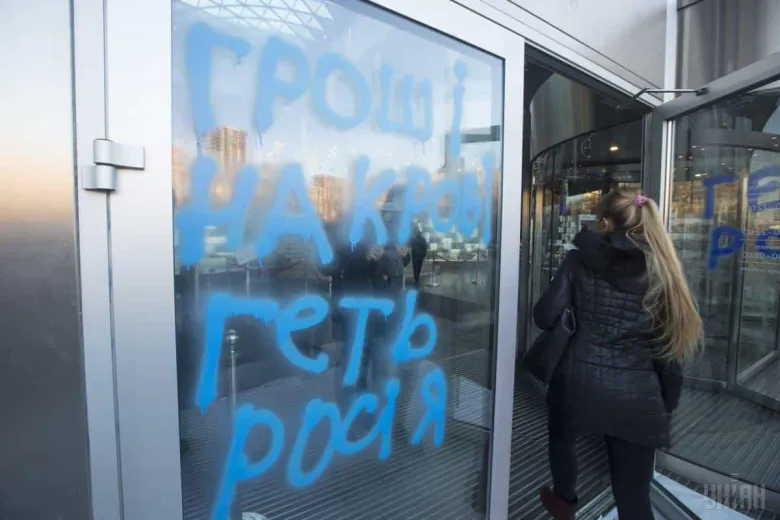 ГРОШІ
НА КРОВІ
ГЕТЬ
РОСІЯ
ГЕ
РО
УНІАН